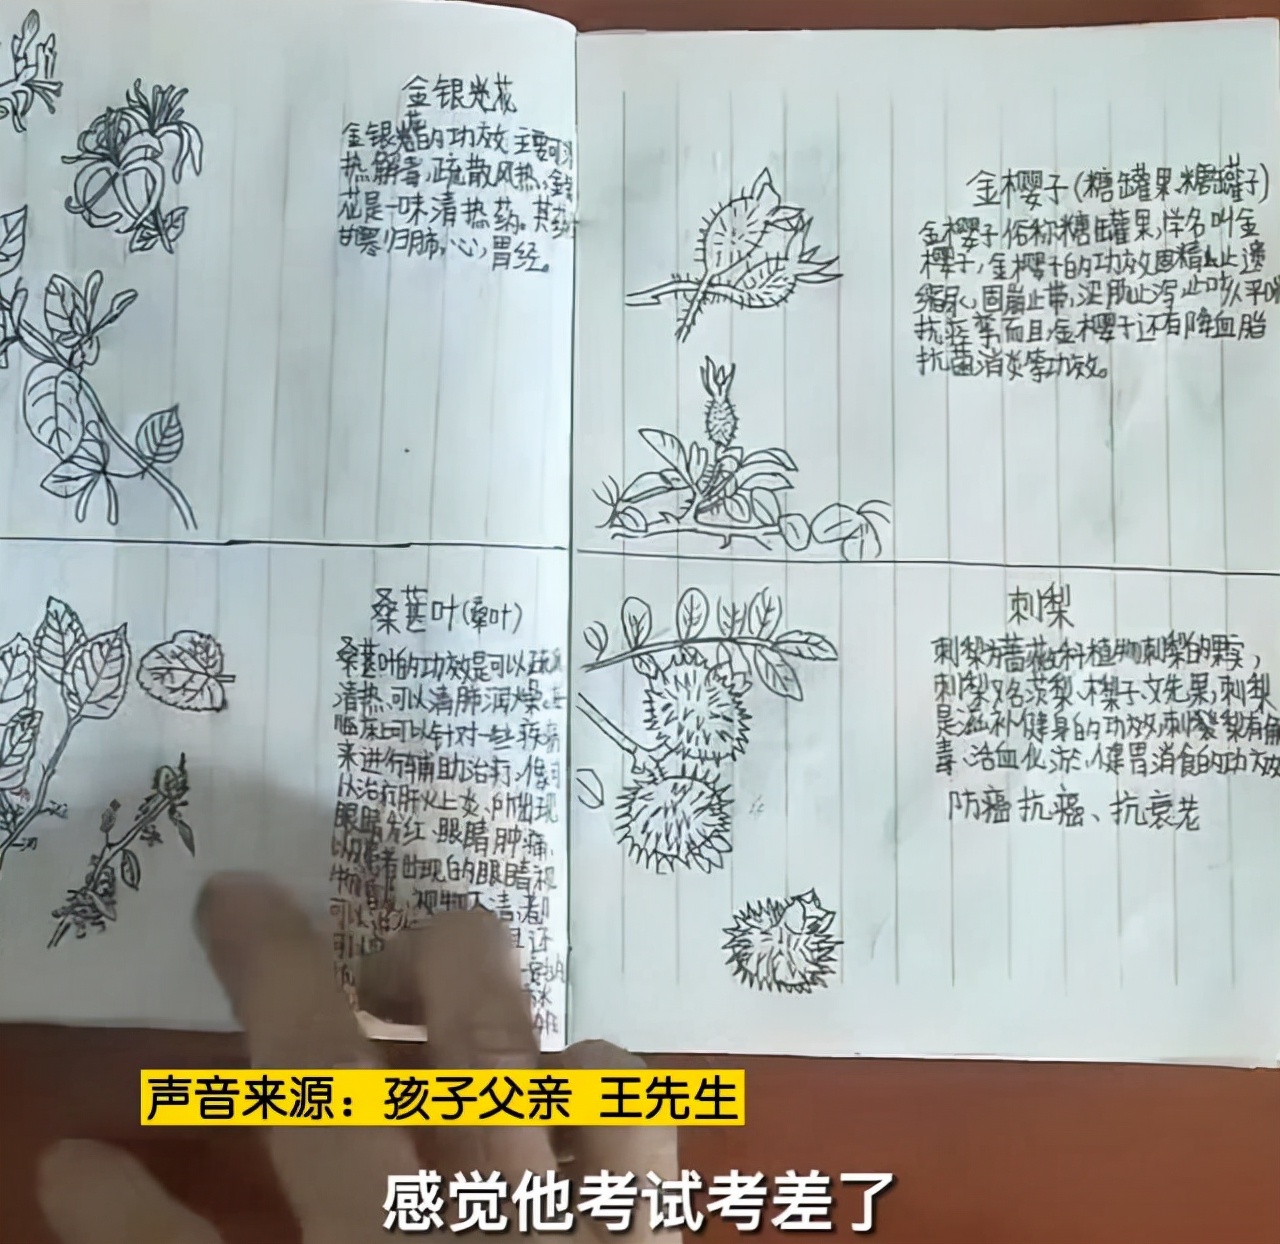 金银花
金银花的功效主要可清
热解毒,疏散风热,金银
花是一味清热药。其药
甘寒归肺,心,胃经。
桑葚叶(桑叶)
桑葚叶的功效是可以疏风
清热,可以清肺润燥,在
临床上可以针对一些疾病
来进行辅助治疗,像可
以治疗肝火上炎、所出现
眼睛发红、眼睛肿痛,
出现的眼睛视
视物不清,都
且还
金樱子(糖罐果、糖罐子)
金樱子俗称糖罐果,学名叫金
樱子,金樱子的功效固精止遗
缩尿,固崩止带,涩肠止泻止咳平喘
抗痉挛而且,金樱子还有降血脂
抗菌消炎等功效。
刺梨
刺梨为蔷薇科植物刺梨的果实,
刺梨又名茨梨、木梨子、文先果,刺梨
是滋补健身的功效,刺梨有解
毒、活血化淤、健胃消食的功效
防癌抗癌、抗衰老
声音来源：孩子父亲 王先生
感觉他考试考差了